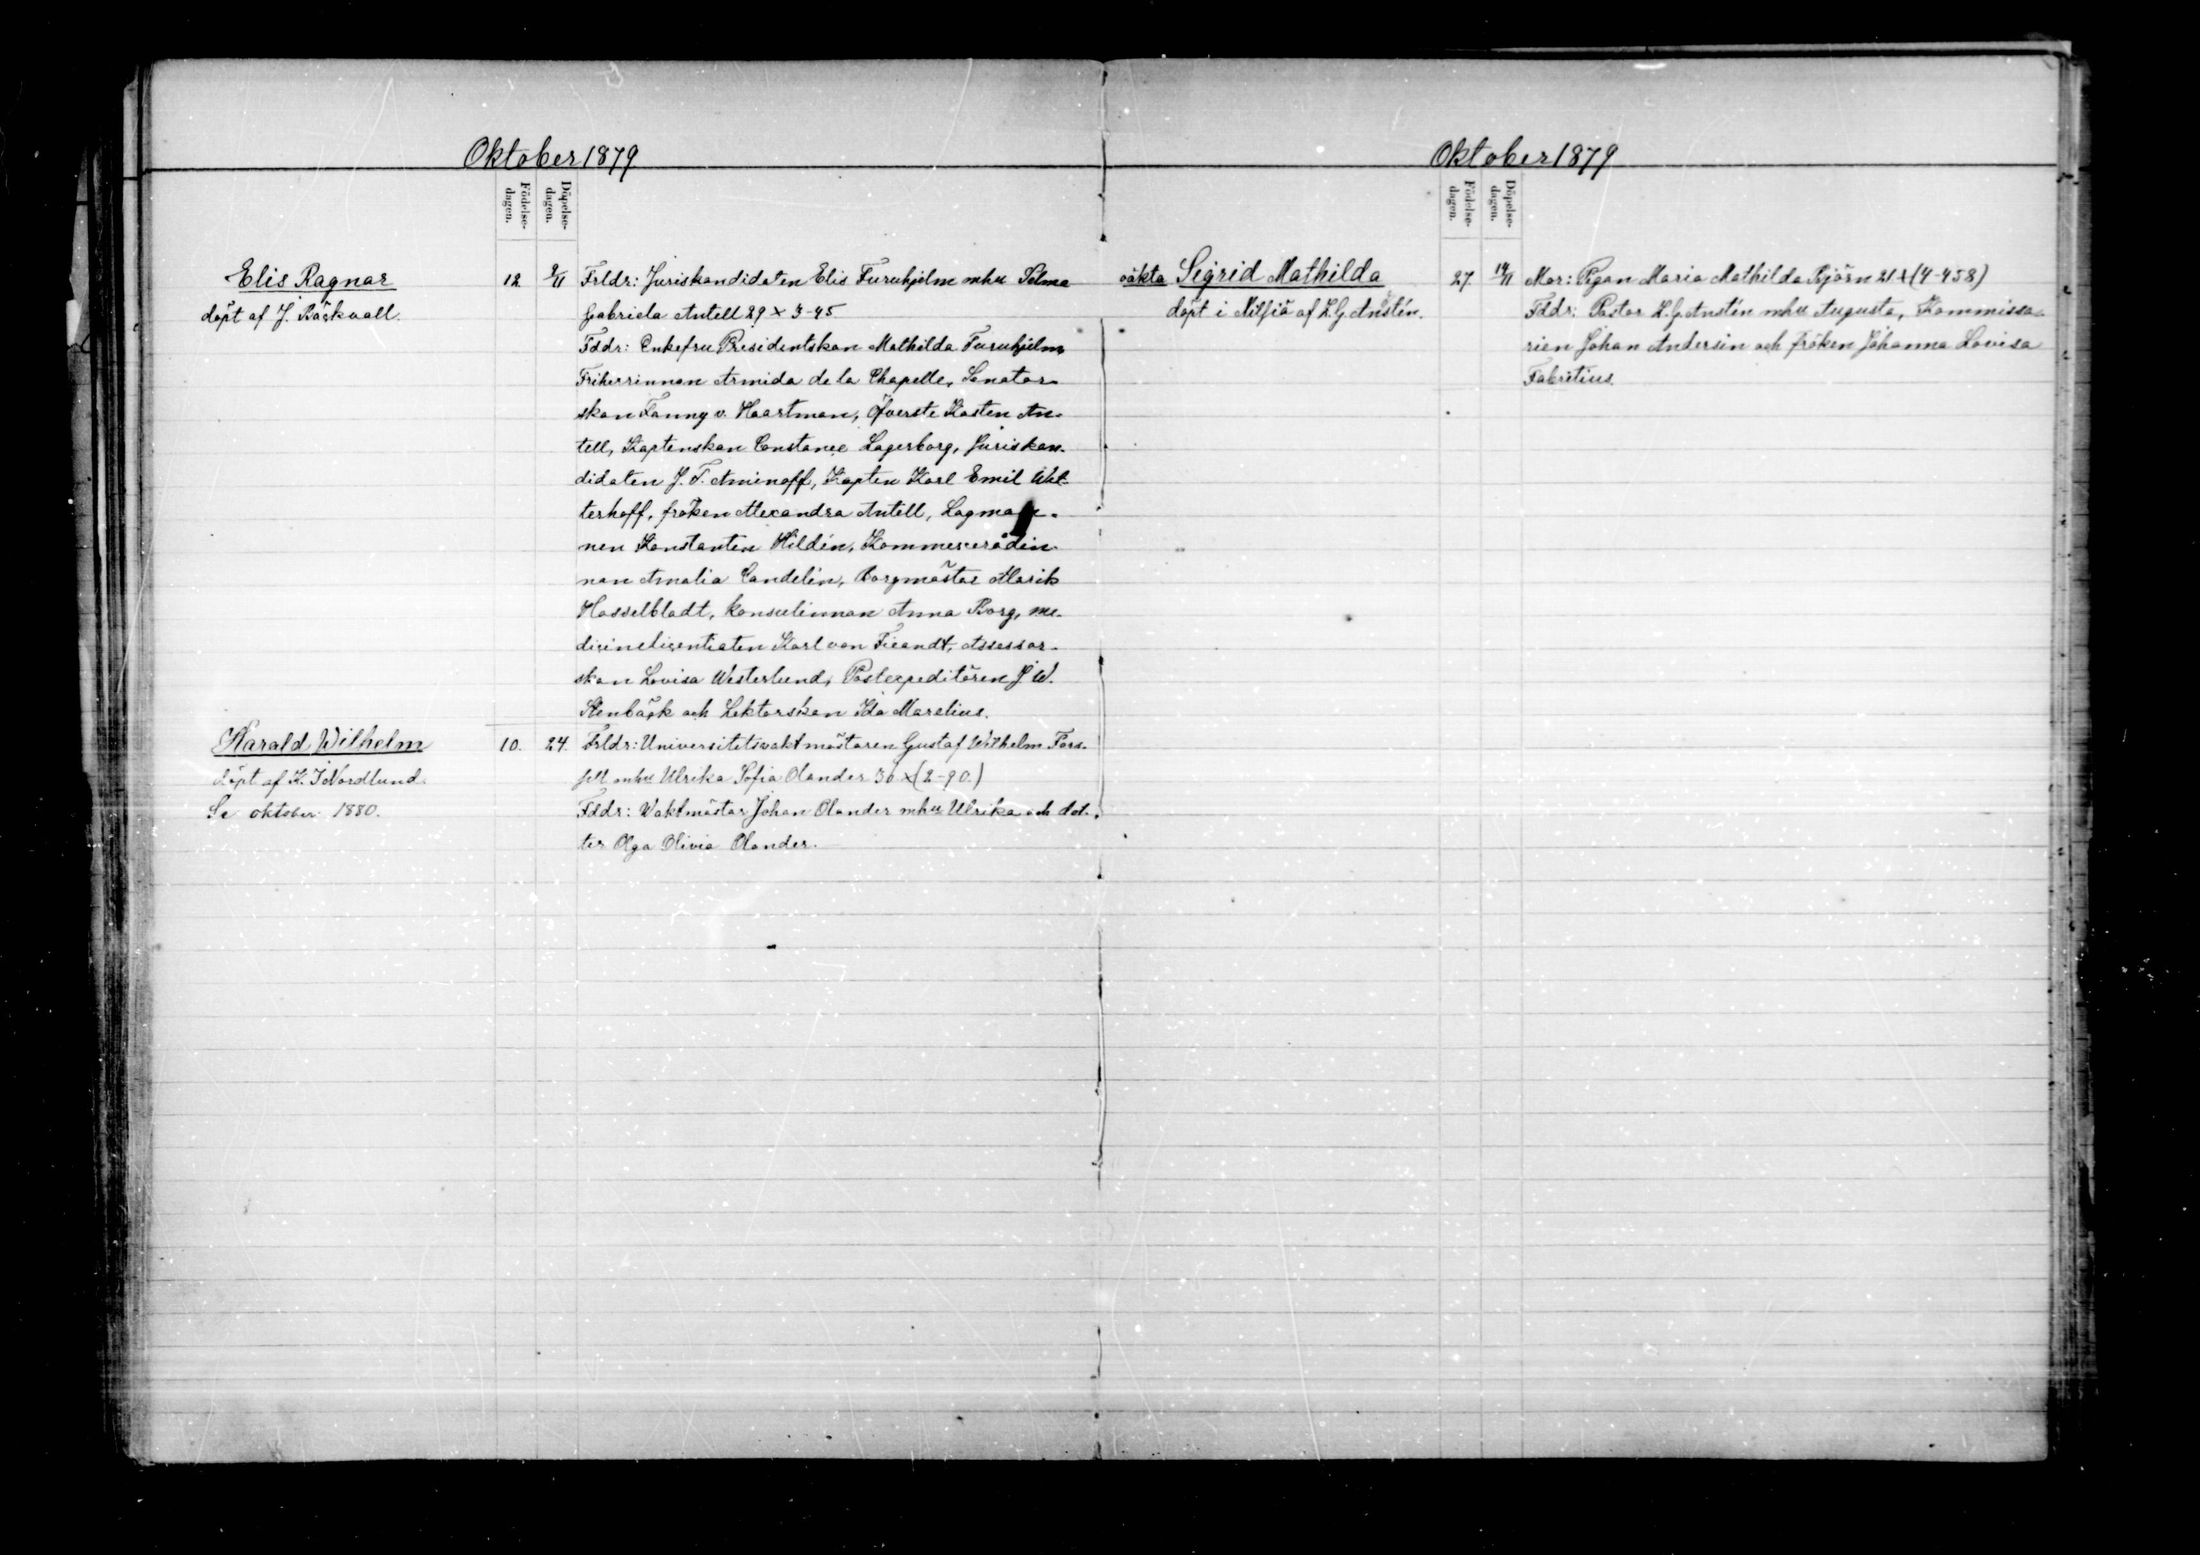 Oktober 1879
Födelse-
dagen.
Döpelse-
dagen.
Elis Ragnar
döpt af J. Bäckvall.
12
9/11
Frldr: Juriskandidaten Elis Furuhjelm mhu Selma
Gabriela Antell 29 x 3-45
Fddr: Enkefru Presidentskan Mathilda Furuhjelm
Friherrinnan Armida de la Chapelle, Senator-
skan Fanny v. Haartman, Öfverste Kasten An-
tell, Kaptenskan Constance Lagerborg, Juriskan-
didaten J. F. Aminoff, Kapten Karl Emil Wet-
terhoff, fröken Alexandra Antell, Lagman-
nen Konstantin Hildén, Kommerserådin-
nan Amalia Candelin, Borgmästar Alarik
Hasselbladt, konsulinnan Anna Borg, me-
dicinelicentiaten Karl von Fieandt, Assessor-
skan Lovisa Westerlund, Postexpeditören J W.
Stenbäck och Lektorskan Ida Marelius.
Harald Wilhelm
döpt af K. J Nordlund.
Se oktober 1880.
10.
24.
Frldr: Universitetsvaktmästaren Gustaf Wilhelm Fors-
sell mhu Ulrika Sofia Olander 36 x (2-90.)
Fddr: Waktmästar Johan Olander mhu Ulrika och dot-
ter Olga Olivia Olander.
Oktober 1879
Födelse-
dagen.
Döpelse-
dagen.
oäkta Sigrid Mathilda
döpt i Nilsiä af K G Anstén.
27.
14/11
Mor: Pgan Maria Mathilda Björn 21 + (4-458)
Fddr: Pastor K. G. Anstén mhu Augusta, Kommissa-
rien Johan Andersin och fröken Johanna Lovisa
Fabritius.